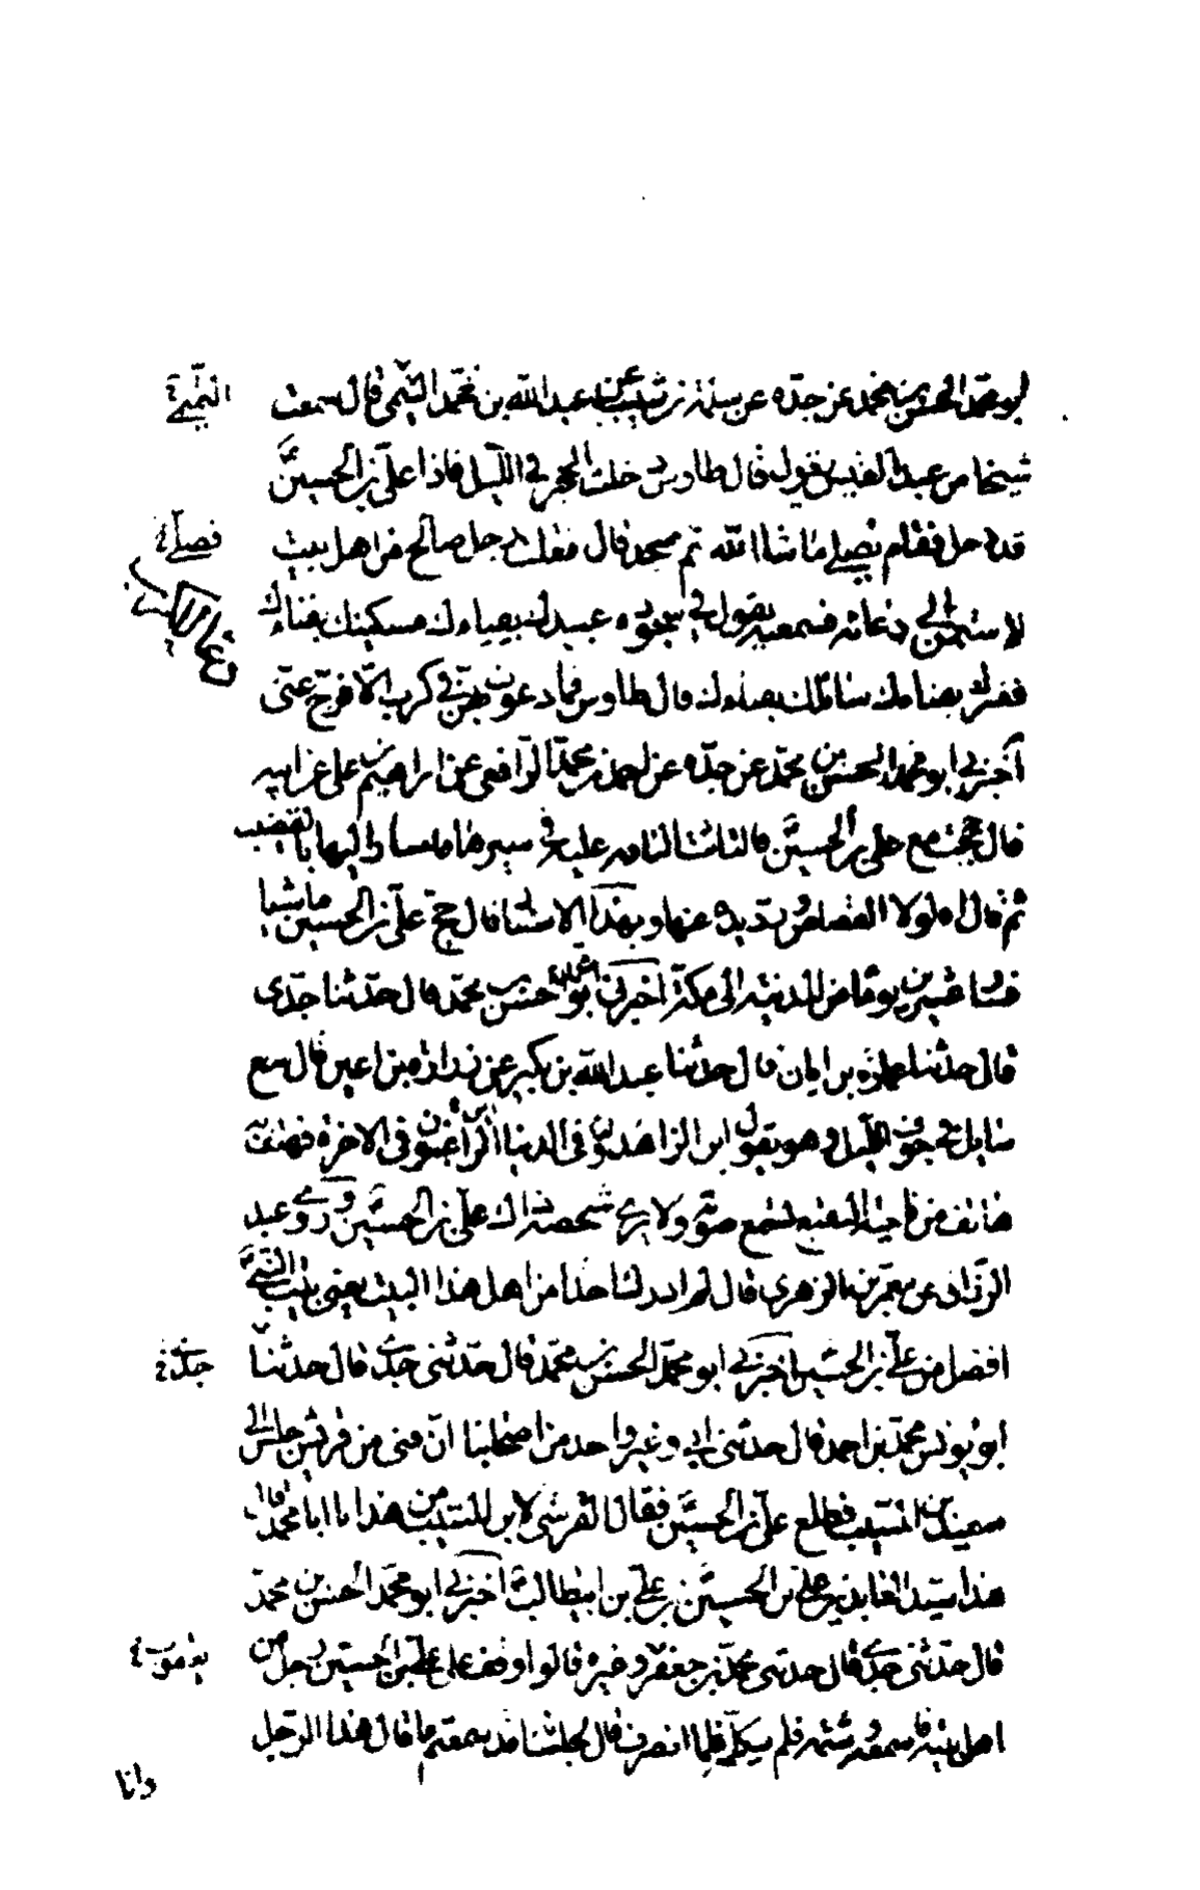 ابو محمد الحسن بن محمد عن جده عن سلمة بن شبيب عن عبد الله بن محمد التيمي قال سمعت
التيمي
شيخا من عبد القيس يقول قال طاوس دخلت الحجر في الليل فاذا علي بن الحسين
قد دخل فقام يصلي ما شاء الله ثم سجد قال فقلت رجل صالح من اهل بيت
فصلى
لاستمعن الى دعائه فسمعته يقول في سجوده عبيدك بفناءك مسكينك بفناءك
فقيرك بفناءك سائلك بفناءك قال طاوس فما دعوت بهن في كرب الا فرج عني
أخبرني ابو محمد الحسن بن محمد عن جده عن احمد بن محمد الرافعي عن ابراهيم بن علي عن ابيه
قال حججت مع علي بن الحسين فالتاثت الناقه عليه في سيرها فاشار اليها بالقضيب
ثم قال اه لولا القصاص ورد يده عنها وبهذا الاسناد قال حج علي بن الحسين ماشيا
فسار عشرين يوما من المدينه الى مكة اخبرني ابو محمد الحسن بن محمد قال حدثنا جدي
قال حدثنا عمار بن ابان قال حدثنا عبد الله بن بكير عن زرارة بن اعين قال سمع
سايل في جوف الليل وهو يقول اين الزاهدون في الدنيا الراغبون في الاخرة فهتف
هاتف من ناحية البقيع يسمع صوته ولا يرى شخصه ذاك علي بن الحسين وروى عبد
الرزاق عن معمر عن الزهري قال لم ادرك احدا من اهل هذا البيت يعني بيت النبي
افضل من علي بن الحسين أخبرني ابو محمد الحسن بن محمد قال حدثني جدي قال حدثنا
جدي
ابو يونس محمد بن احمد قال حدثني ابي وغير واحد من اصحابنا ان فتى من قريش جلس الى
سعيد بن المسيب فطلع علي بن الحسين فقال القرشي لابن المسيب من هذا يا ابا محمد قال
هذا سيد العابدين علي بن الحسين بن علي بن ابي طالب أخبرني ابو محمد الحسن بن محمد
قال حدثني جدي قال حدثني محمد بن جعفر وغيره قالوا وقف على علي بن الحسين رجل من
اهل بيته فاسمعه وشتمه فلم يكلمه فلما انصرف قال لجلسائه قد سمعتم ما قال هذا الرجل
وانا